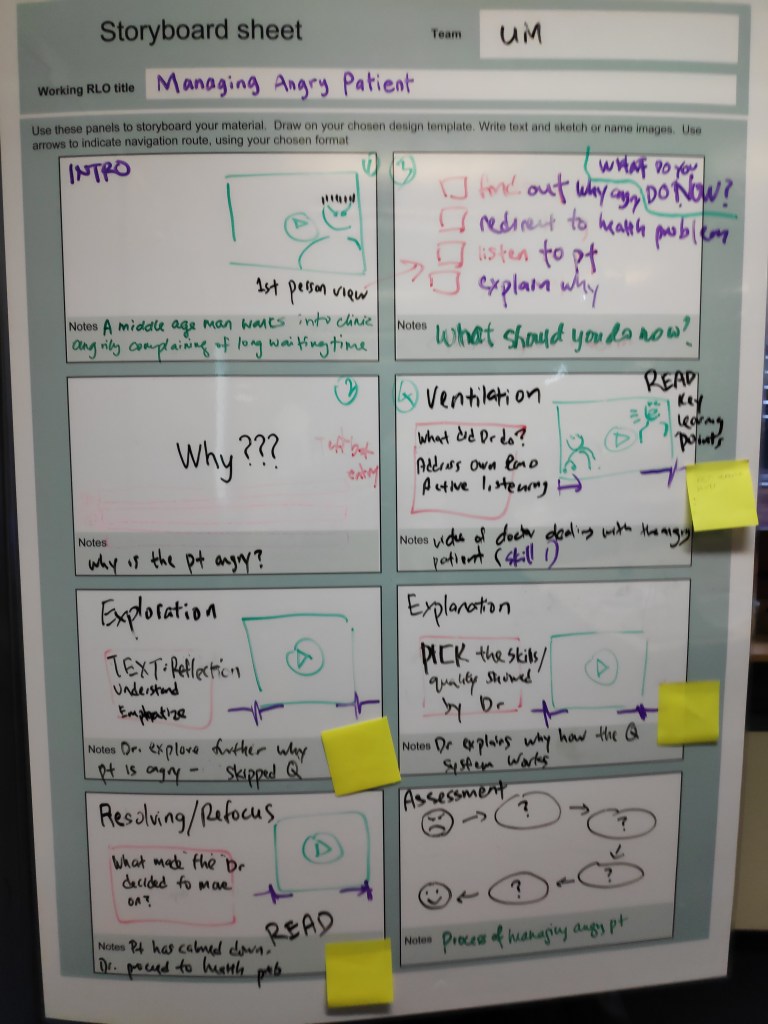 Storyboard sheet
Team UM
Working RLO title Managing Angry Patient
Use these panels to storyboard your material. Draw on your chosen design template. Write text and sketch or name images. Use
arrows to indicate navigation route, using your chosen format
INTRO
1
1st person view
Notes A middle age man walks into clinic
angrily complaining of long waiting time
3
WHAT DO YOU
DO NOW?
find out why angry
redirect to health problem
listen to pt
explain why
Notes What should you do now?
2
Why ???
Text
entry
Notes
Why is the pt angry?
4
Ventilation
READ
Key
learning
points
What did Dr do?
Address own
Active listening
Notes video of doctor dealing with the angry
patient (skill 1)
Exploration
TEXT: Reflection
Understand
Emphatize
Notes Dr. explore further why
pt is angry - skipped Q
Explanation
PICK the skills/
quality showed
by Dr
Notes Dr explains why how the Q
system works
Resolving/Refocus
What made the Dr
decided to move
on?
READ
Notes Pt has calmed down.
Dr. proceed to health prob
Assessment
?
?
?
?
Notes Process of managing angry pt